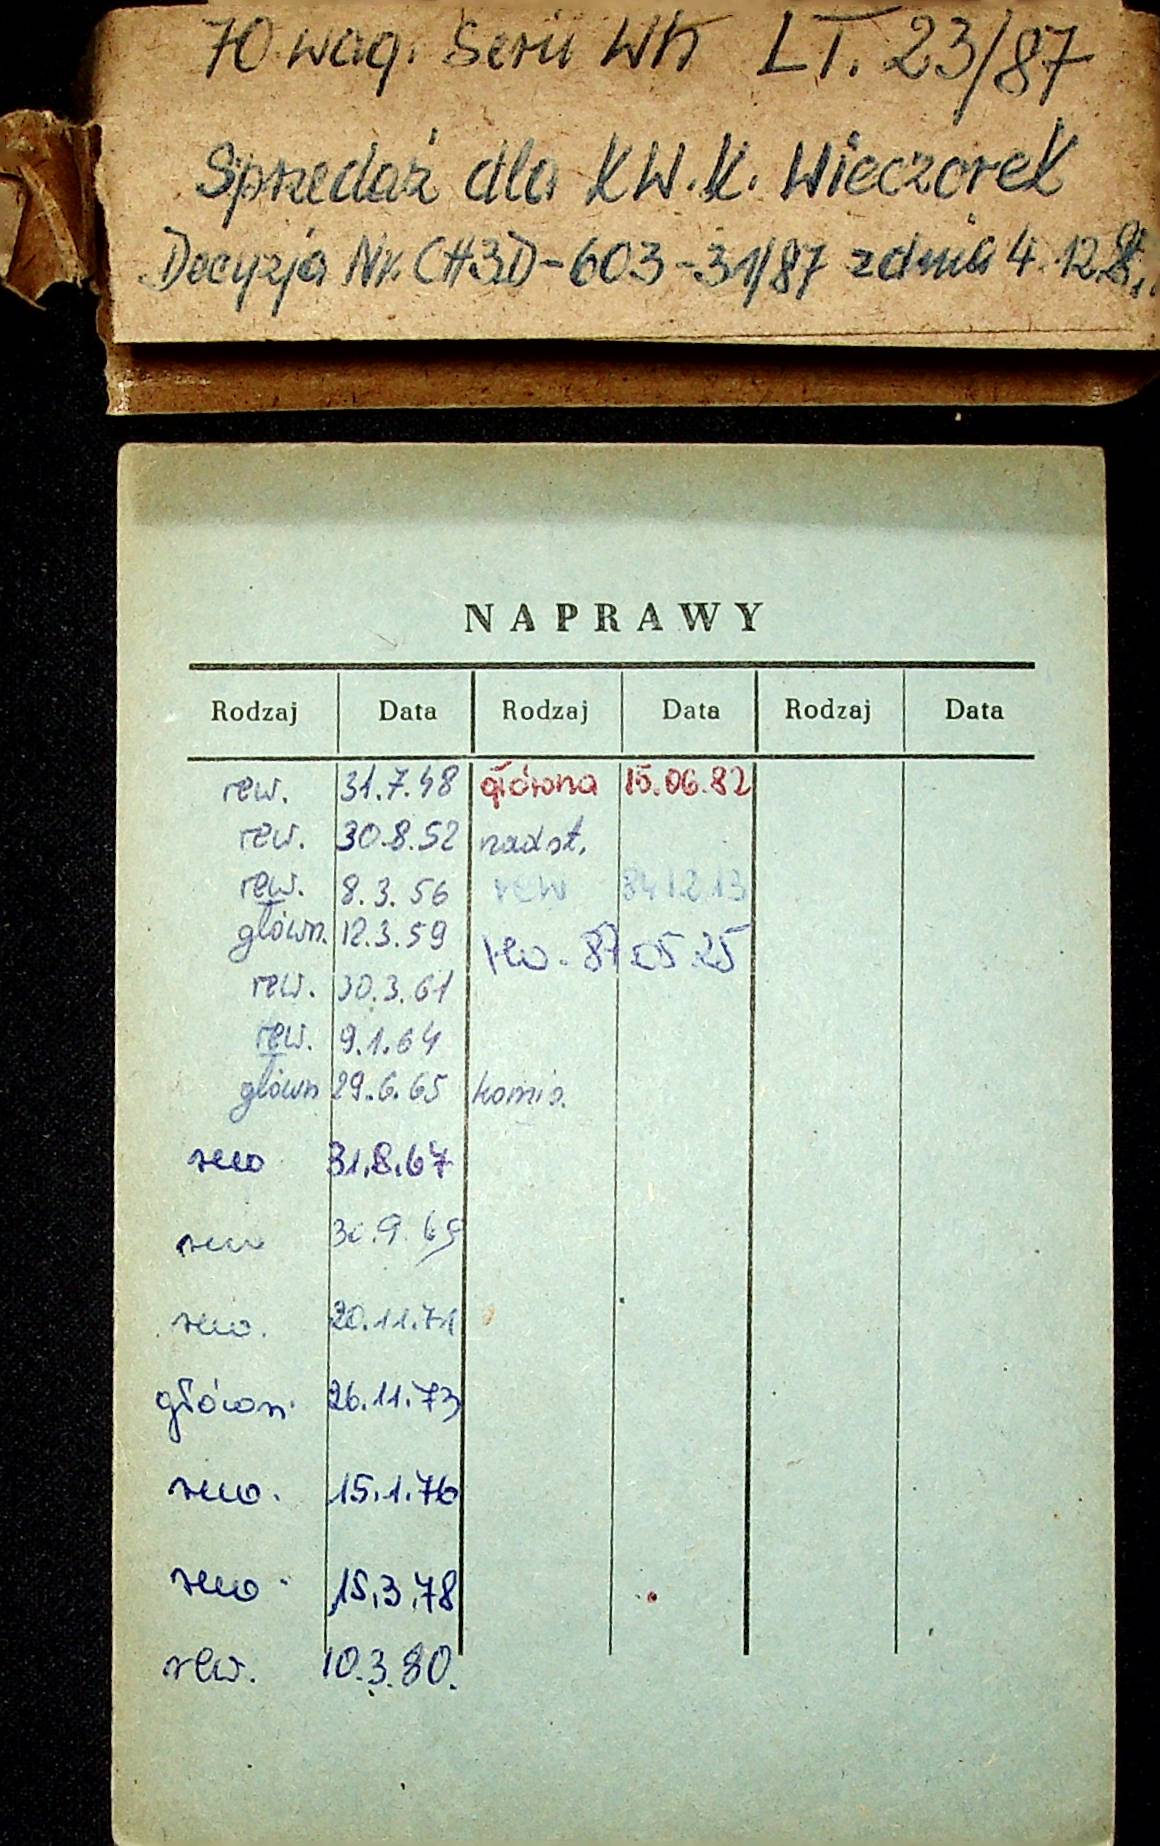 70 wag. Serii Wh LT. 23/87
Sprzedaż dla KW.K. Wieczorek
Decyzja Nr. CH3D-603-31/87 z dnia 4.12.
NAPRAWY
Rodzaj Data Rodzaj Data Rodzaj Data
rew. 31.7.48 główna 15.06.82
rew. 30.8.52 nadst.
rew. 8.3.56 rew 84.12.13
główn. 12.3.59 rew. 87.05.25
rew. 30.3.61
rew. 9.1.64
główn 29.6.65 komis.
rew 31.8.67
rew 30.9.69
rew. 20.11.71
główn. 26.11.73
rew. 15.1.76
rew. 15.3.78
rew. 10.3.80.